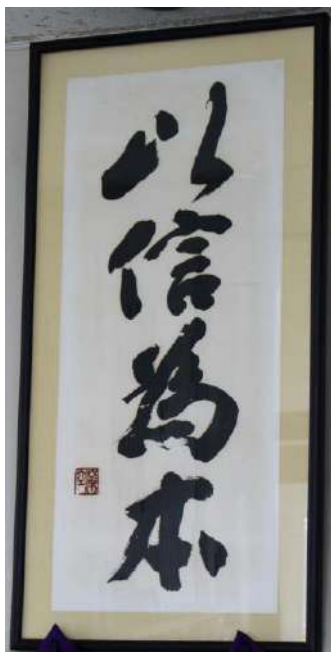 以信為本